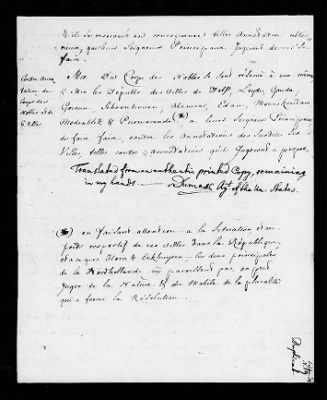 & de se reserver en consequence telles Annotations ulté-
rieures, que leurs Seigneurs Principaux jugeront devoir se
faire.
Contre Anno-
tation du
Corps des
Nobles & de
6 Villes
Mrs. Du Corps des Nobles se sont réservé à eux mêmes
& Mrs les Députés des Villes de Delft, Leyde, Gouda,
Gorcum, Schoonhoven, Alcmaar, Edam, Monnikendam
Medenblik & Purmerende (*) à leurs Seigneurs Principaux
de faire faire, contre les Annotations des susdites six
Villes, telles contre-annotations qu'ils jugeront à propos.
Translated from an authentic printed Copy, remaining
in my hands. Dumas Agt. of the Un. States.
(*) en faisant attention à la Situation &au
poids respectif de ces villes dans la République,
& à ce que Horn & Enkhuysen, les deux principales
de la Nordhollande n'y paroissent pas, on peut
juger de la Nature & des Mobiles de la pluralité
qui a formé la Résolution.
Duplicate